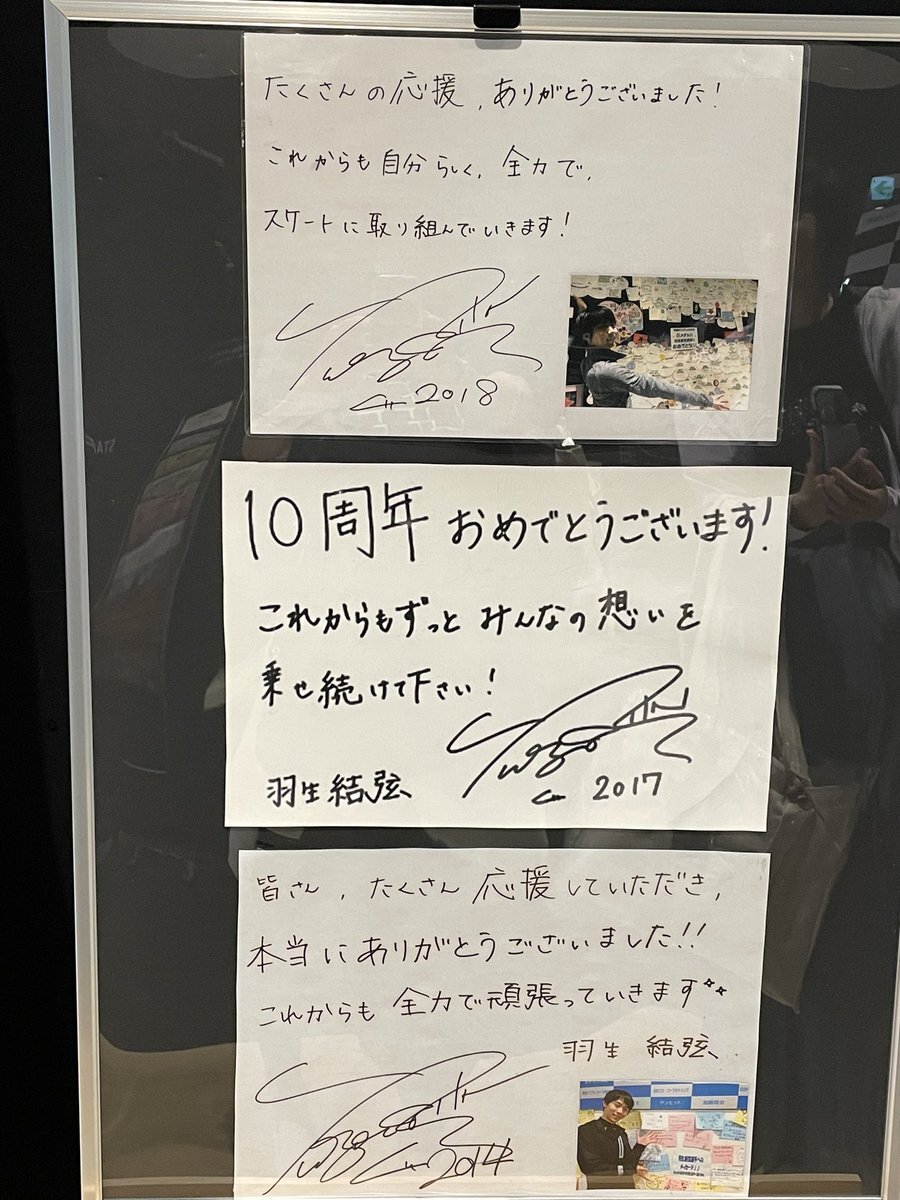 たくさんの応援、ありがとうございました!
これからも自分らしく、全力で、
スケートに取り組んでいきます!
2018
10周年 おめでとうございます!
これからもずっと みんなの想いを
乗せ続けて下さい!
羽生結弦
2017
皆さん、たくさん 応援していただき、
本当にありがとうございました!!
これからも 全力で頑張っていきます
羽生 結弦
2014